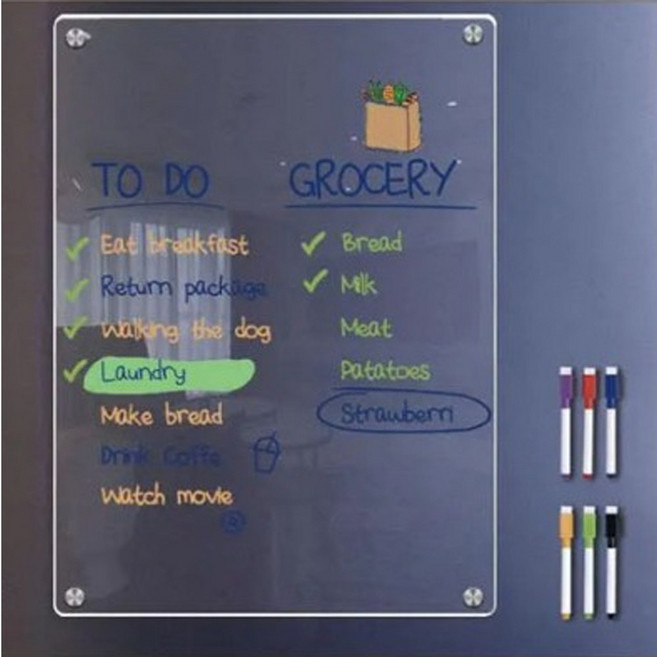 TO DO
Eat breakfast
Return package
Walking the dog
Laundry
Make bread
Drink Coffe
Watch movie
GROCERY
Bread
Milk
Meat
Patatoes
Strawberri